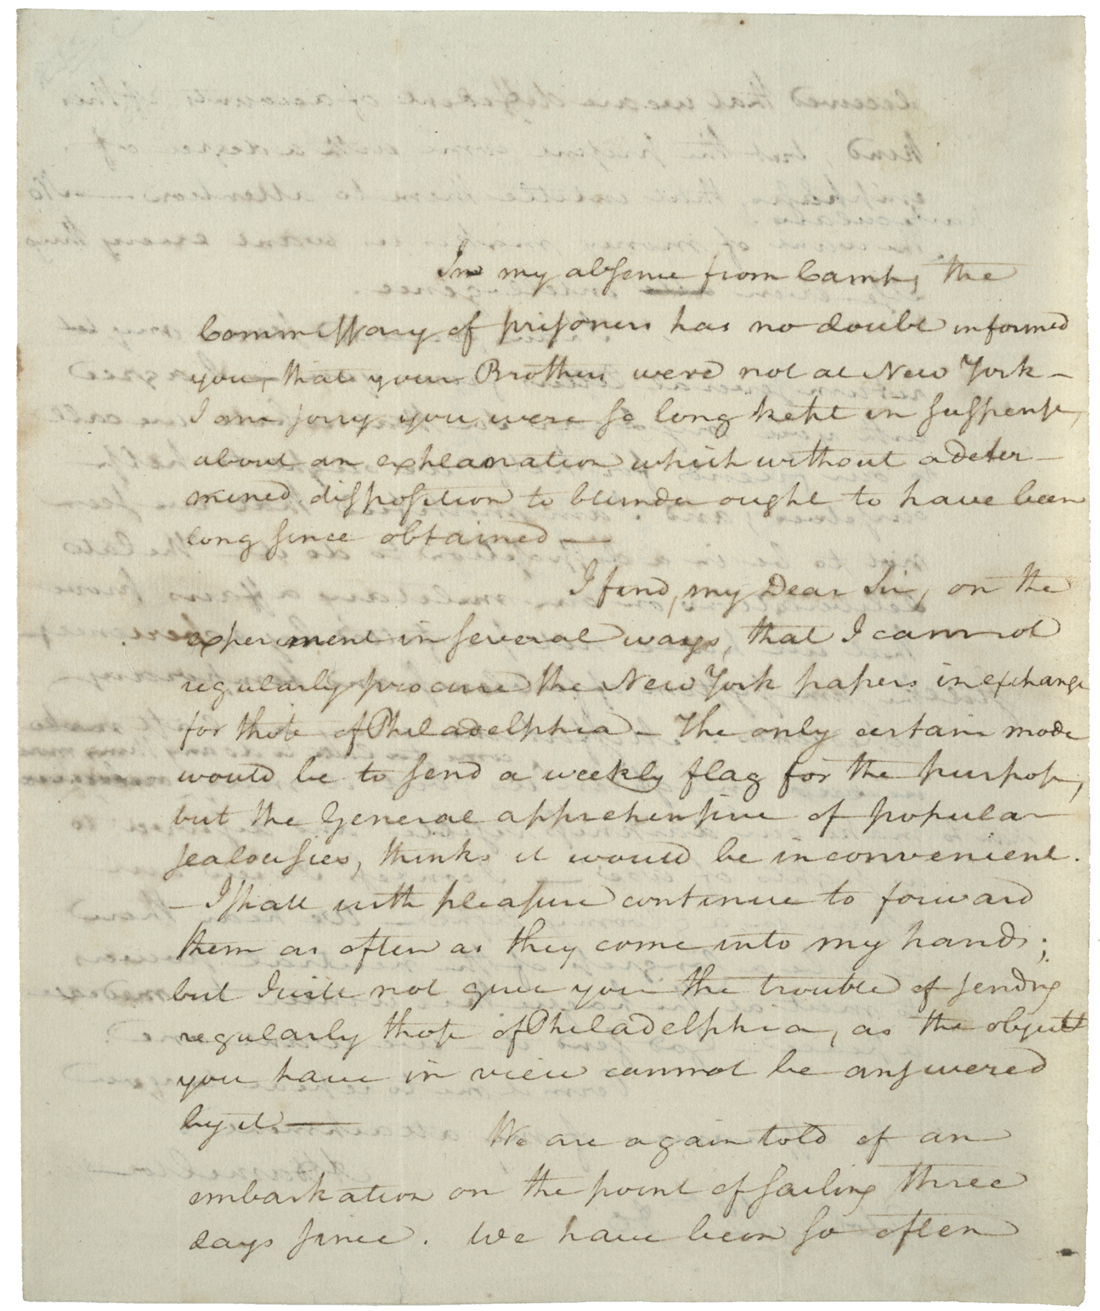 In my absence from Camp, the
Commissary of prisoners has no doubt informed
you, that your Brothers were not at New York—
I am sorry you were so long kept in suspense,
about an explanation which without a deter—
mined disposition to blunder ought to have been
long since obtained—
I find, my Dear Sir, on the
experiment in several ways, that I cannot
regularly procure the New York papers in exchange
for those of Philadelphia— The only certain mode
would be to send a weekly flag for the purpose,
but the General apprehensive of popular
jealousies, thinks it would be inconvenient.
— I shall with pleasure continue to forward
them as often as they come into my hands;
but I will not give you the trouble of sending
regularly those of Philadelphia, as the object
you have in view cannot be answered
by it—
We are again told of an
embarkation on the point of sailing three
days since. We have been so often